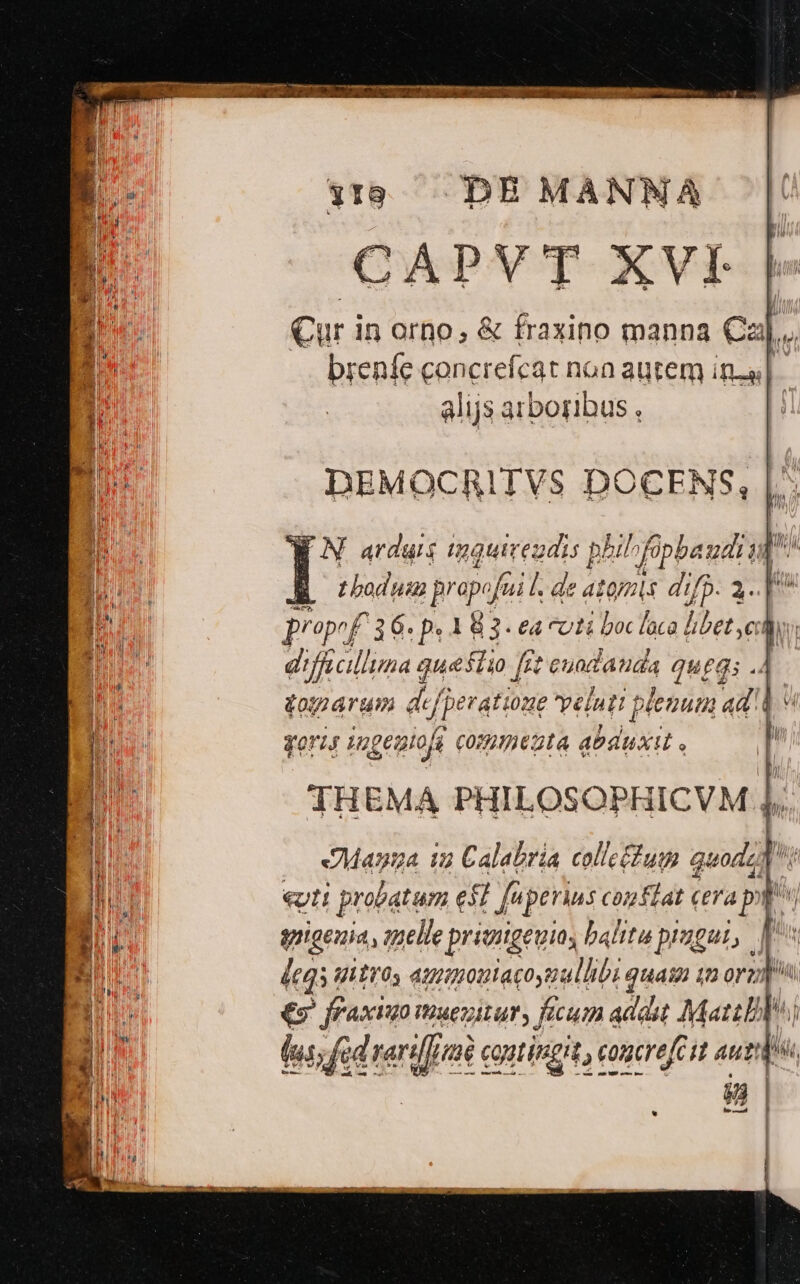 118 DE MANNA
CAPVT XVI
Cur in orno, & fraxino manna Cal
brenſe concreſcat non autem in
alijs arboribus.
DEMOCRITVS DOCENS,
IN arduis inquirendis philoſophandi
thodum propoſui l. de atomis diſp. 2.
propoſ 36. p. 183. ea vti hoc loco libet,
difficillima quæstio fit euodanda quęq;
tomarum deſperatione veluti plenum ad
toris ingenioſa commenta abduxit.
THEMA PHILOSOPHICVM
Manna in Calabria collectum
vti probatum est ſuperius constat cera
migenia, melle primigenio, halitu pingui,
leq; nitro, ammoniaco, nullibi quam in
& fraxino inuenitur, ficum addit Matth
lus, ſed rariſſimè contingit, concreſcit
in